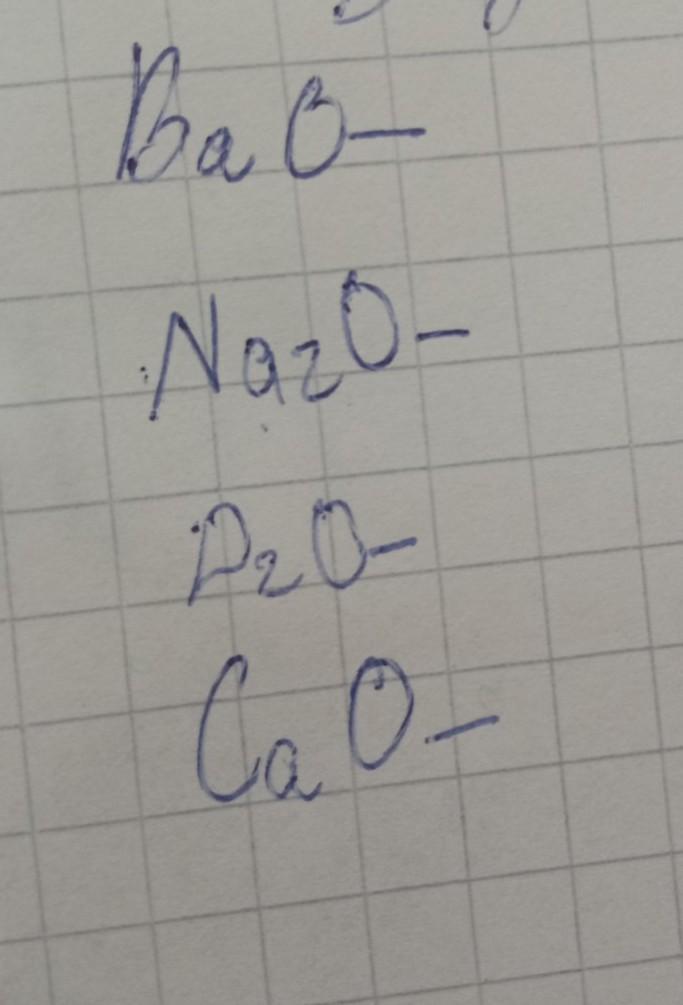 BaO-
Na₂O-
D₂O-
CaO-